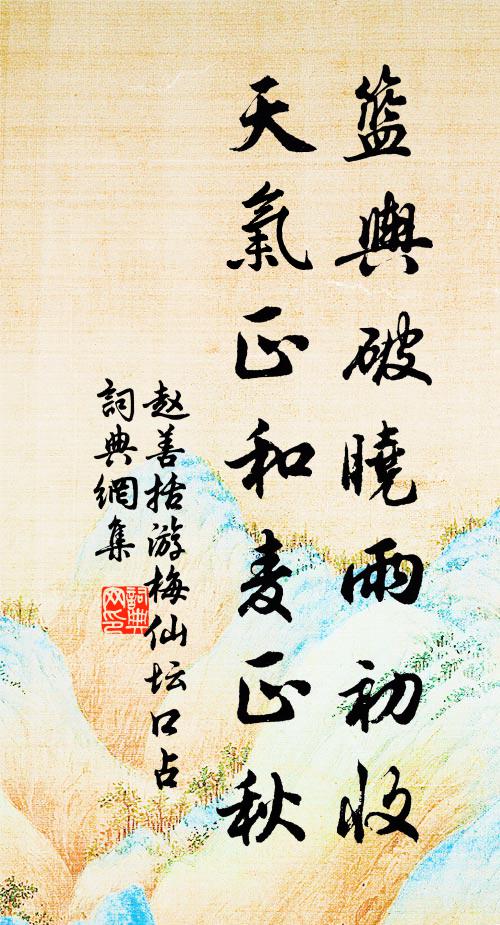 籃輿破曉雨初收
天氣正和麦正秋
赵善括游梅仙坛口占
詞典網集
詞典网印